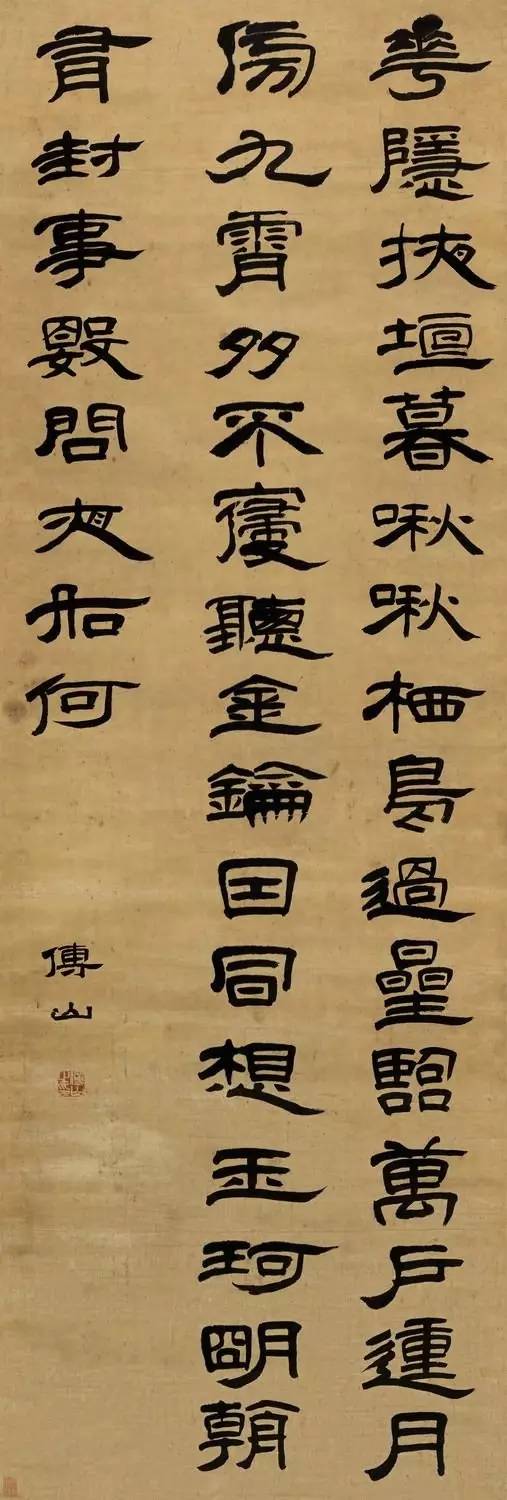 華隱掖垣暮啾啾栖鳥過星臨萬戶動月
傍九霄多不寢聽金鑰因風想玉珂明朝
有封事數問夜如何
傅山